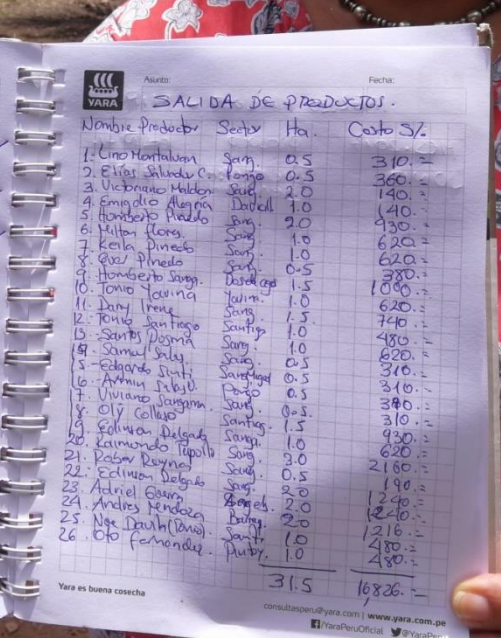 YARA
Asunto:
Fecha:
SALIDA DE PRODUCTOS.
Nombre Productor Sector Ha. Costo S/.
1. Lino Montalvan Sang. 0.5 310.=
2. Elias Salvador C. Pongo 0.5 360.=
3. Victoriano Maldon. Sang. 2.0 140.=
4. Emigdio Alegria David 1.0 140.=
5. Homberto Pinedo Sang. 2.0 930.=
6. Milton Flores. Sang. 1.0 620.=
7. Keila Pinedo Sang. 1.0 620.=
8. Pinedo Sang. 0.5 380.=
9. Homberto Sanga. 1.5 1000.=
10. Tonio Yavina Yavina. 1.0 620.=
11. Dany Irene Sang. 1.5. 740.=
12. Tonio Santiago Santigo 1.0 480.=
13. Santos Sang. 1.0 620.=
14. Samuel Salas Sang. 0.5 310.=
15. Edgardo Sinti SanMiguel 0.5 310.=
16. Armin Pongo 0.5
17. Viviano Sangama. Sang. 0.5. 310.=
18. Oly Collazo Santigo. 1.5 930.=
19. Edinson Delgado Sanga. 1.0 620.=
20. Raimondo Sang. 3.0 2160.=
21. Rober Reyna Sang. 0.5 190.=
22. Edinson Delgado Sang. 2.0 1240.=
23. Adriel 2.0 1240.=
24. Andres Mendoza 2.0 1216.=
25. Santi 1.0 480.=
26. Oto Fernandez. 1.0 480.=
31.5 16,826.=
Yara es buena cosecha
consultasperu@yara.com | www.yara.com.pe
/YaraPeruOficial @YaraPeru